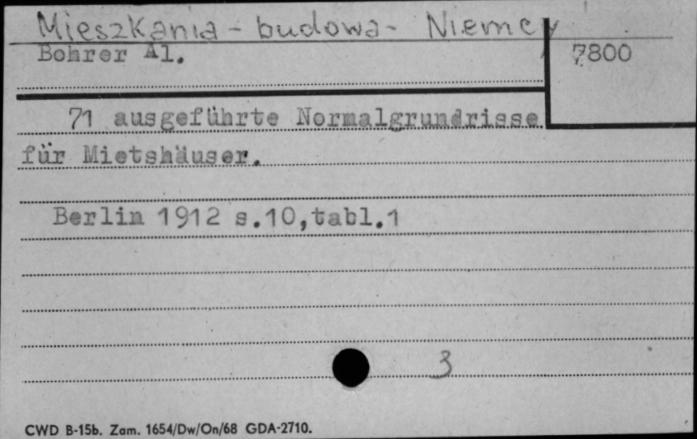 Mieszkania - budowa - Niemcy
Bohrer Al.
7800
71 ausgeführte Normalgrundrisse
für Mietshäuser.
Berlin 1912 s.10,tabl.1
3
CWD B-15b. Zam. 1654/Dw/On/68 GDA-2710.